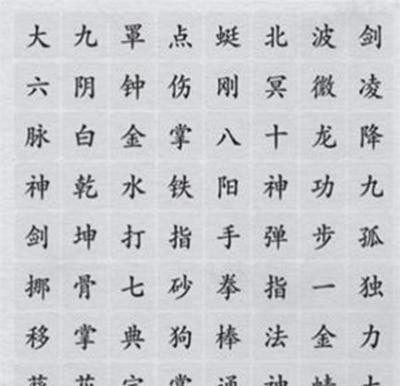 大九罩点蜓北波剑
六阴钟伤刚冥微凌
脉白金掌八十龙降
神乾水铁阳神功九
剑坤打指手弹步孤
挪骨七砂拳指一独
移掌典狗棒法金力